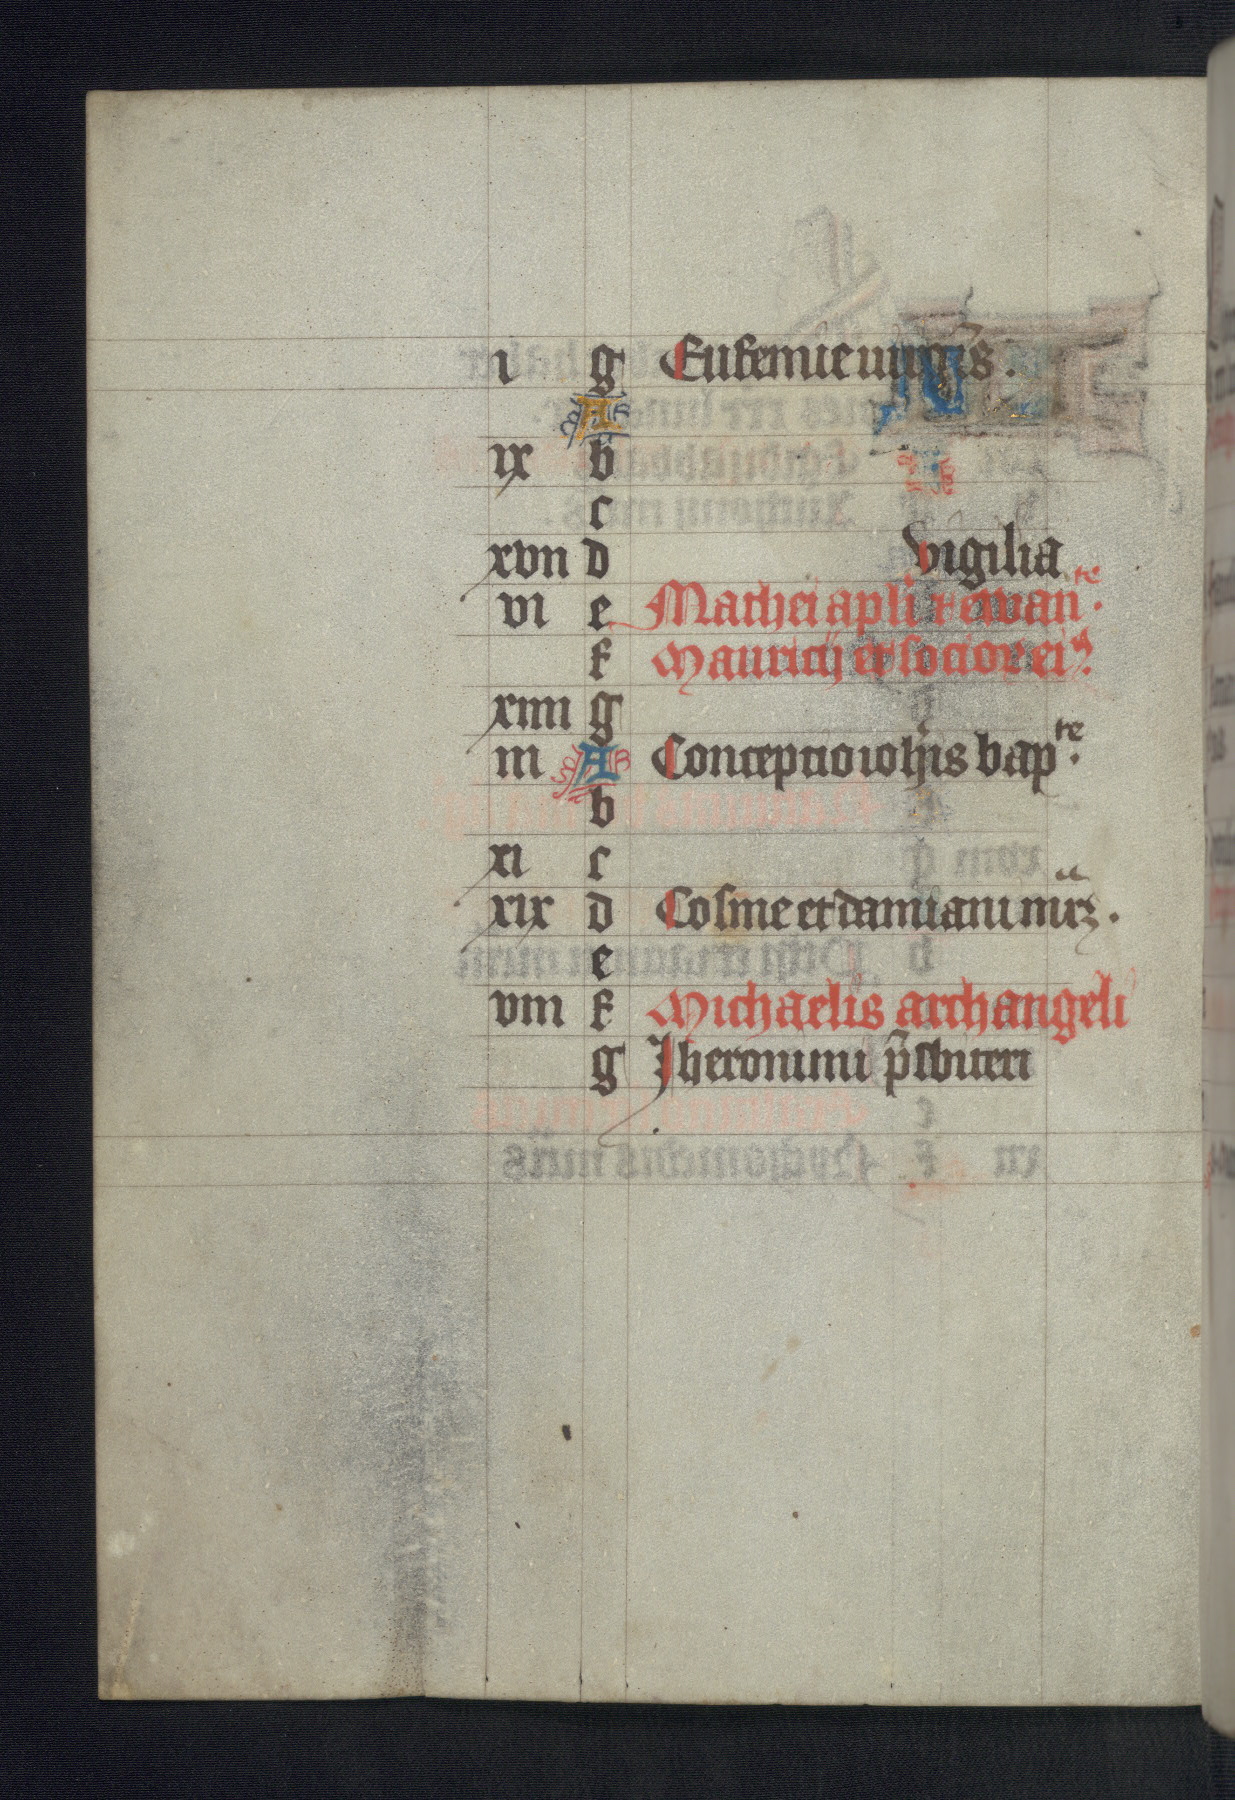 i g Eufemie uirginis.
A
ix b
c
xvii d vigilia
vi e Mathei apli & ewan te.
f Mauricij et socior ei9.
xiiii g
iii A Conceptio iohis bap te.
b
xi c
xix d Cosme et damiani mrz.
e
viii f Michaelis archangeli
g Jheronimi p̄sbiteri